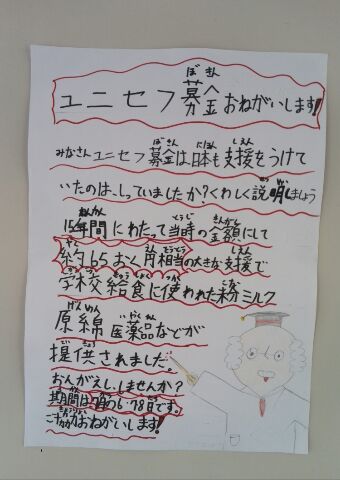 ユニセフ募金おねがいします!
みなさんユニセフ募金は、日本も支援をうけて
いたのは、しっていましたか?くわしく説明しましょう
15年間にわたって当時の金額にして
約65おく円相当の大きな支援で
学校給食に使われた粉ミルク
原綿医薬品などが
提供されました。
おんがえし、しませんか?
期間は7月の6・7・8日です。
ご協力おねがいします!